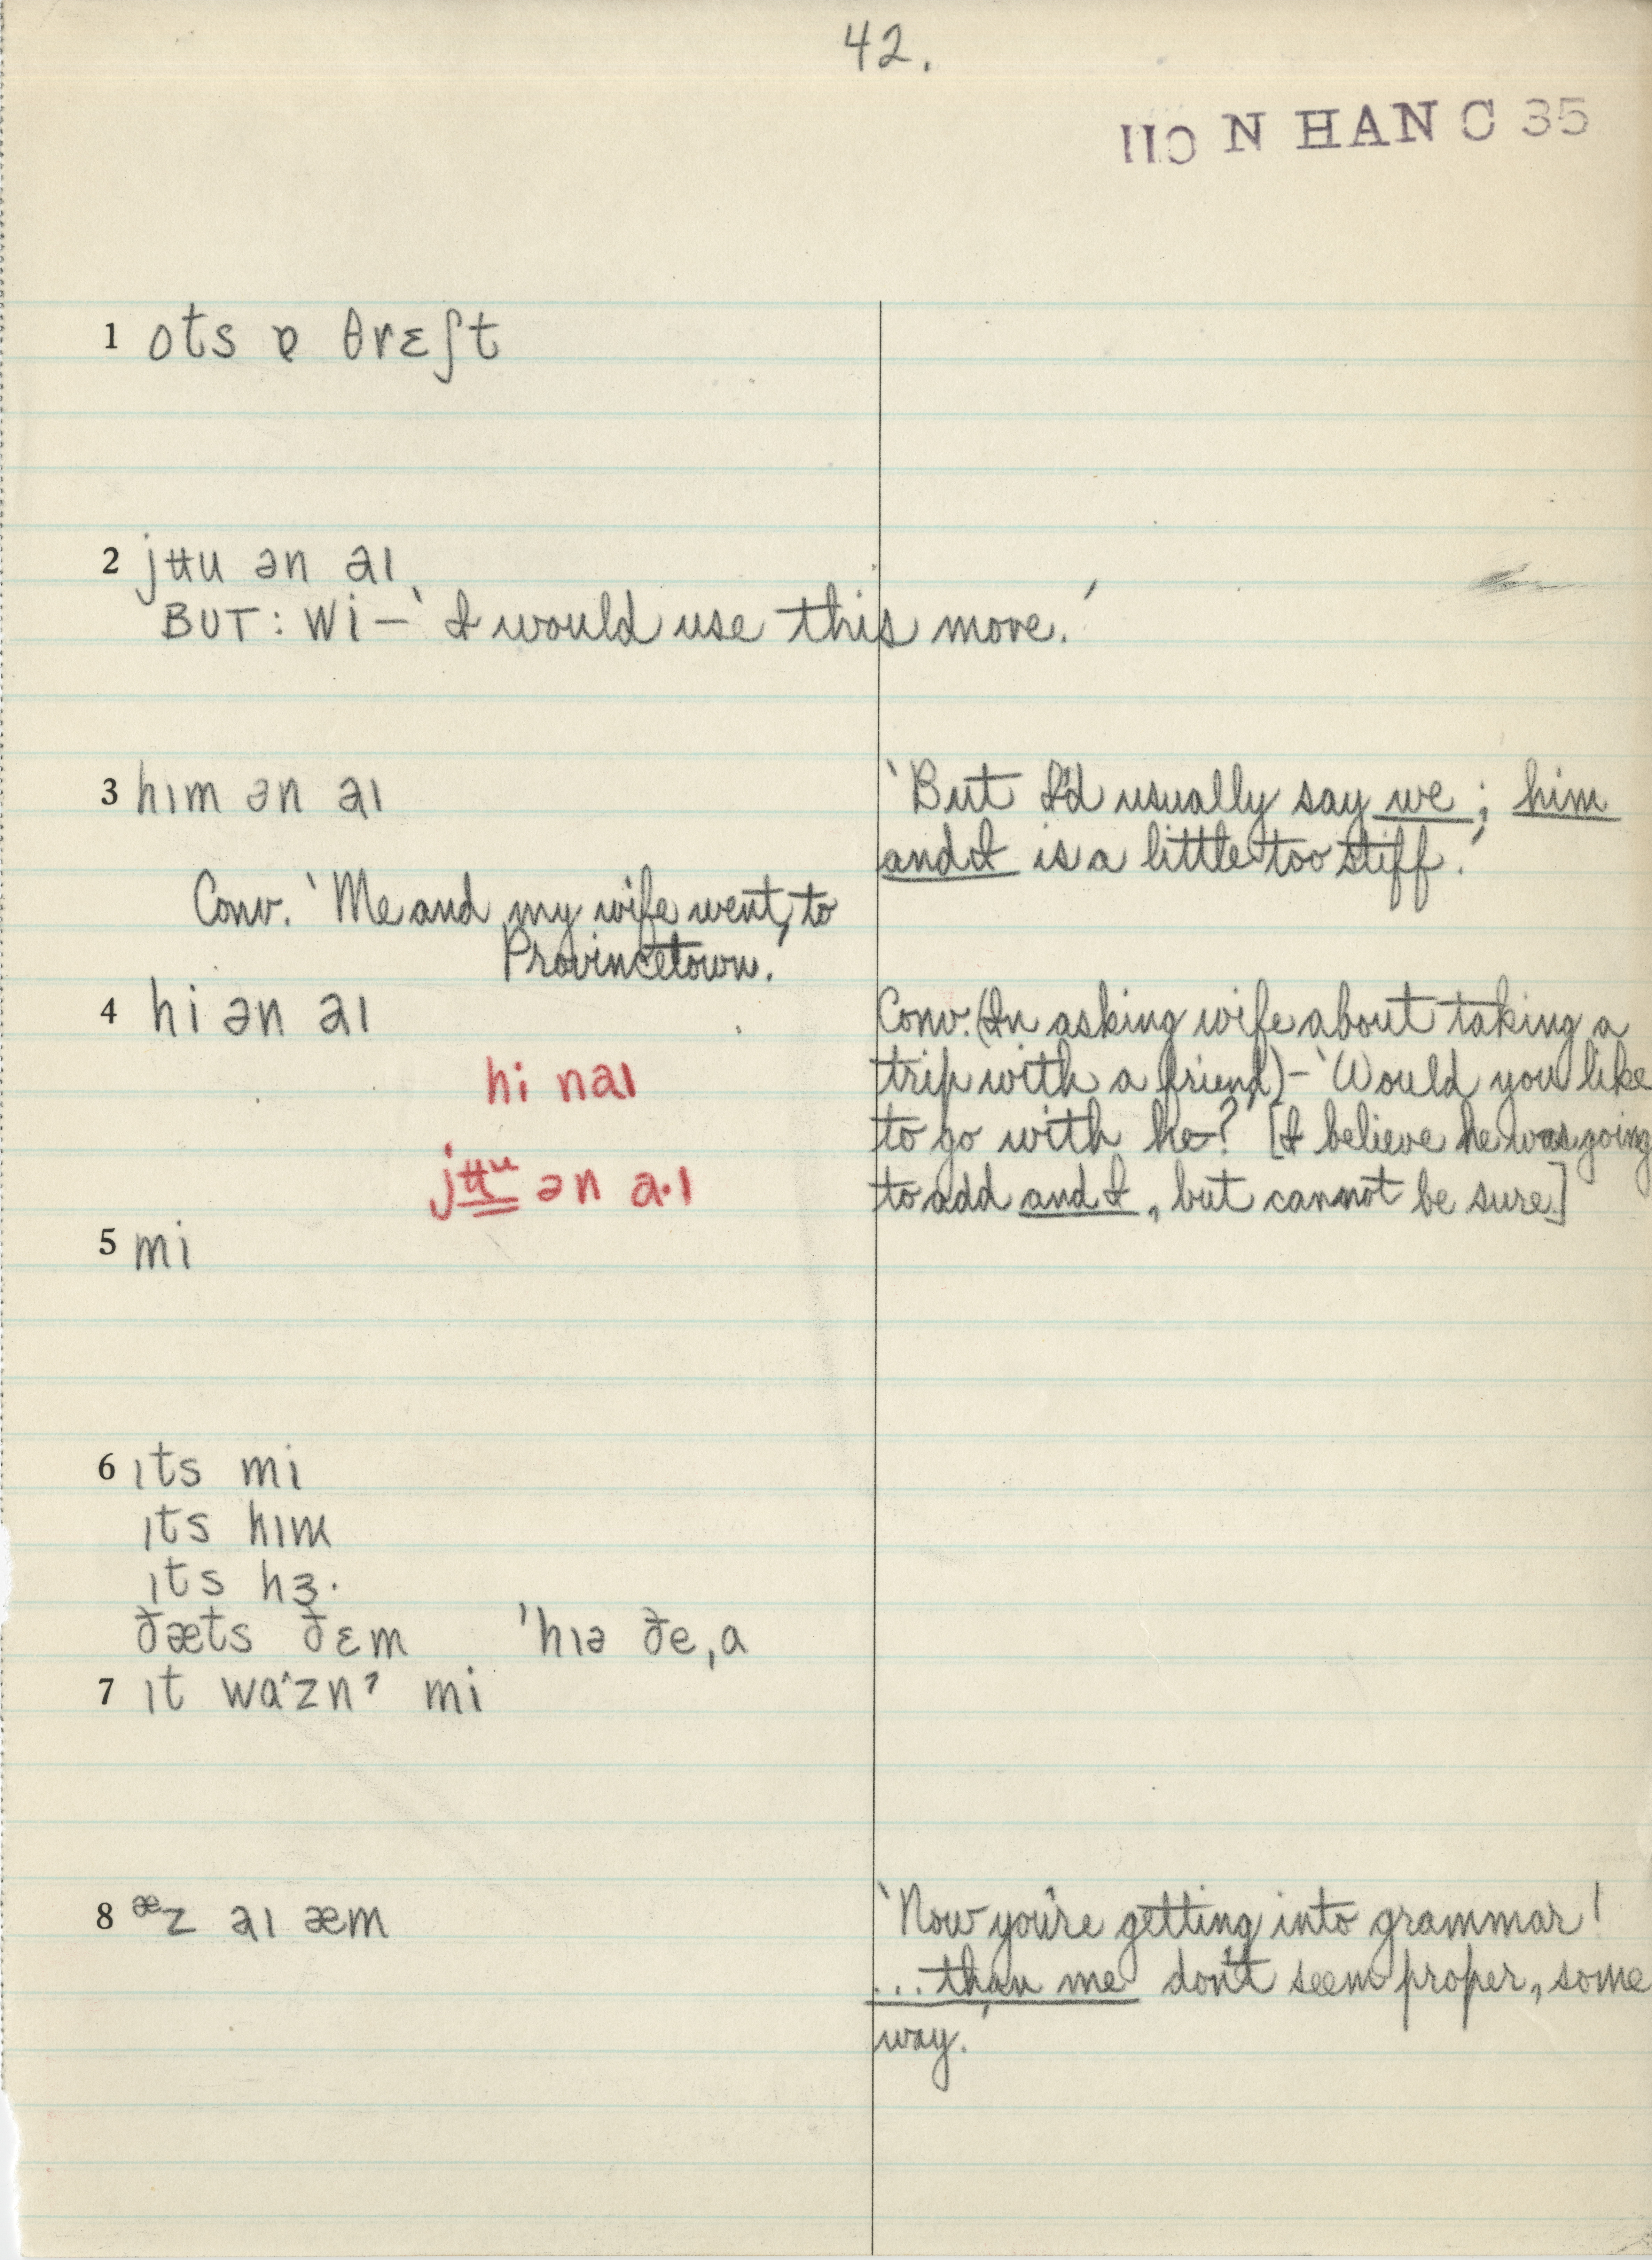 42.
N HAN C 35
1 ots ɐ θrɛʃt
2 jʉu ən aɪ
BUT: wi – 'I would use this more.'
3 hɪm ən aɪ
'But I'd usually say we; him
and I is a little too stiff.'
Conv. 'Me and my wife went to
Provincetown.'
4 hi ən aɪ
hi naɪ
jʉu ən a·ɪ
Conv. (In asking wife about taking a
trip with a friend) – 'Would you like
to go with he–?' [I believe he was going
to add and I, but cannot be sure.]
5 mi
6 ɪts mi
ɪts hɪm
ɪts hɜ·
ðæts ðɛm 'hɪə ðe,a
7 ɪt waˑznˀ mi
8 æz aɪ æm
'Now you're getting into grammar!
...than me don't seem proper, some
way.'